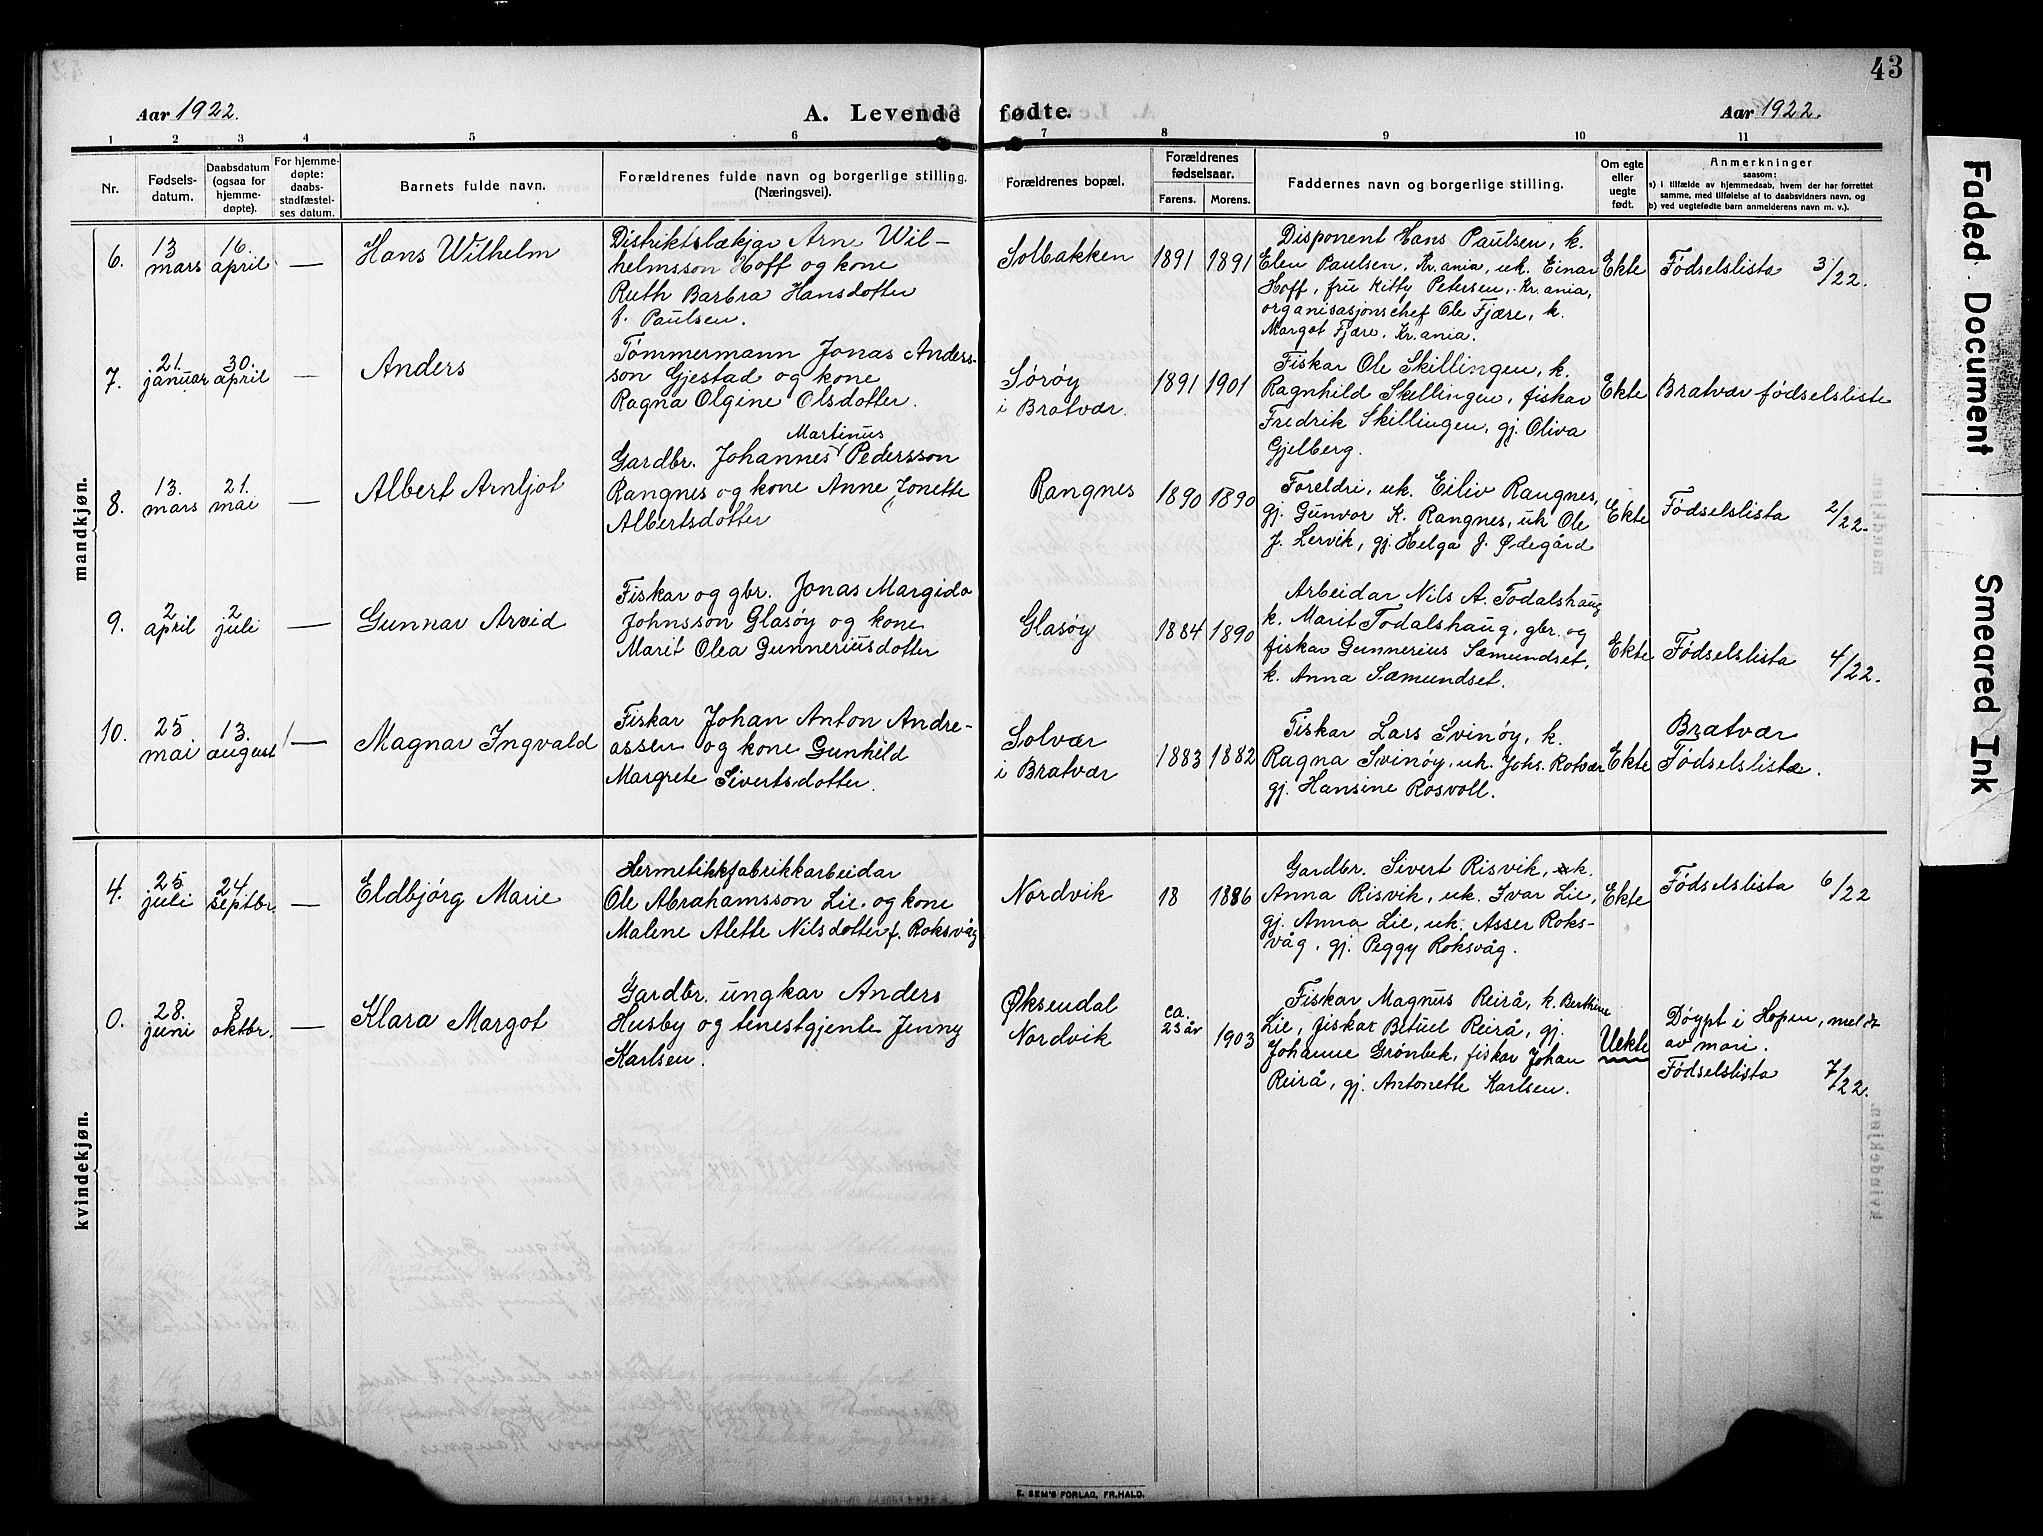 43
Aar 1922.
A. Levende fødte.
Aar 1922.
1 2 3 4 5 6 7 8 9 10 11
Nr.
Fødsels-
datum.
Daabsdatum
(ogsaa for
hjemme-
døpte).
For hjemme-
døpte:
daabs-
stadfæstel-
ses datum.
Barnets fulde navn.
Forældrenes fulde navn og borgerlige stilling.
(Næringsvei).
Forældrenes bopæl.
Forældrenes
fødselsaar.
Farens. Morens.
Faddernes navn og borgerlige stilling.
Om egte
eller
uegte
født.
Anmerkninger
saasom:
a) i tilfælde av hjemmedaab, hvem der har forrettet
samme, med tilføielse af to daabsvidners navn, og
b) ved uegtefødte barn anmelderens navn m. v.).
mandkjøn.
6.
13
mars
16.
april
—
Hans Wilhelm
Distriktslækjar Arne Wil-
helmsson Hoff og kone
Ruth Barbra Hansdotter
f. Paulsen.
Solbakken
1891 1891
Disponent Hans Paulsen, k.
Elen Paulsen, Kr.ania, uk. Einar
Hoff, frü Kitty Petersen, Kr.ania,
organisasjonschef Ole Fjære, k.
Margot Fjære, Kr.ania.
Ekte
Fødselslista 3/22.
7.
21.
januar
30.
april
—
Anders
Tømmermann Jonas Anders-
son Gjestad og kone
Ragna Olgine Olsdotter.
Sørøy
i Bratvær.
1891 1901
Fiskar Ole Skillingen, k.
Ragnhild Skillingen, fiskar
Fredrik Skillingen, gj. Oliva
Gjelberg.
Ekte
Bratvær fødselsliste
8.
13.
mars
21.
mai
—
Albert Arnljot
Martinus
Gardbr. Johannes Pedersson
Rangnes og kone Anne Jonette
Albertsdotter
Rangnes
1890 1890
Foreldri, uk. Eiliv Rangnes,
gj. Gunvor K. Rangnes, uk Ole
J. Lervik, gj. Helga J. Ødegård
Ekte
Fødselslista 2/22.
9.
2
april
2
juli
—
Gunnar Arvid
Fiskar og gbr. Jonas Margido
Johnsson Glasøy og kone
Marit Olea Gunneriusdotter
Glasøy
1884 1890
Arbeidar Nils A. Todalshaug
k. Marit Todalshaug, gbr. og
fiskar Gunnerius Sæmundset,
k. Anna Sæmundset.
Ekte
Fødselslista 4/22.
10.
25
mai
13.
august
—
Magnar Ingvald
Fiskar Johan Anton Andre-
assen og kone Gunhild
Margrete Sivertsdotter.
Solvær
i Bratvær
1883 1882
Fiskar Lars Svinøy, k.
Ragna Svinøy, uk. Johs. Rotvær
gj. Hansine Rosvoll.
Ekte
Bratvær
Fødselsliste.
kvindekjøn.
4.
25
juli
24
septbr.
—
Eldbjørg Marie
Hermetikkfabrikkarbeidar
Ole Abrahamsson Lie. og kone
Malene Alette Nilsdotter f. Roksvåg
Nordvik
18 1886
Gardbr. Sivert Risvik, k.
Anna Risvik, uk. Ivar Lie,
gj. Anna Lie, uk. Asser Roks-
våg, gj. Peggy Roksvåg.
Ekte
Fødselslista 6/22
0.
28.
juni
8
oktbr.
—
Klara Margot
Gardbr. ungkar Anders
Husby og tenestgjente Jenny
Karlsen.
Øksendal
Nordvik
ca.
23 år
1903
Fiskar Magnus Reirå, k. Berthine
Lie, fiskar Betuel Reirå, gj.
Johanne Grønbek, fiskar Johan
Reirå, gj. Antonette Karlsen.
Uekte
Døypt i Hopen, meldt
av mori.
Fødselslista 7/22.
E. SEM'S FORLAG, FR.HALD.
Faded Document
Smeared Ink